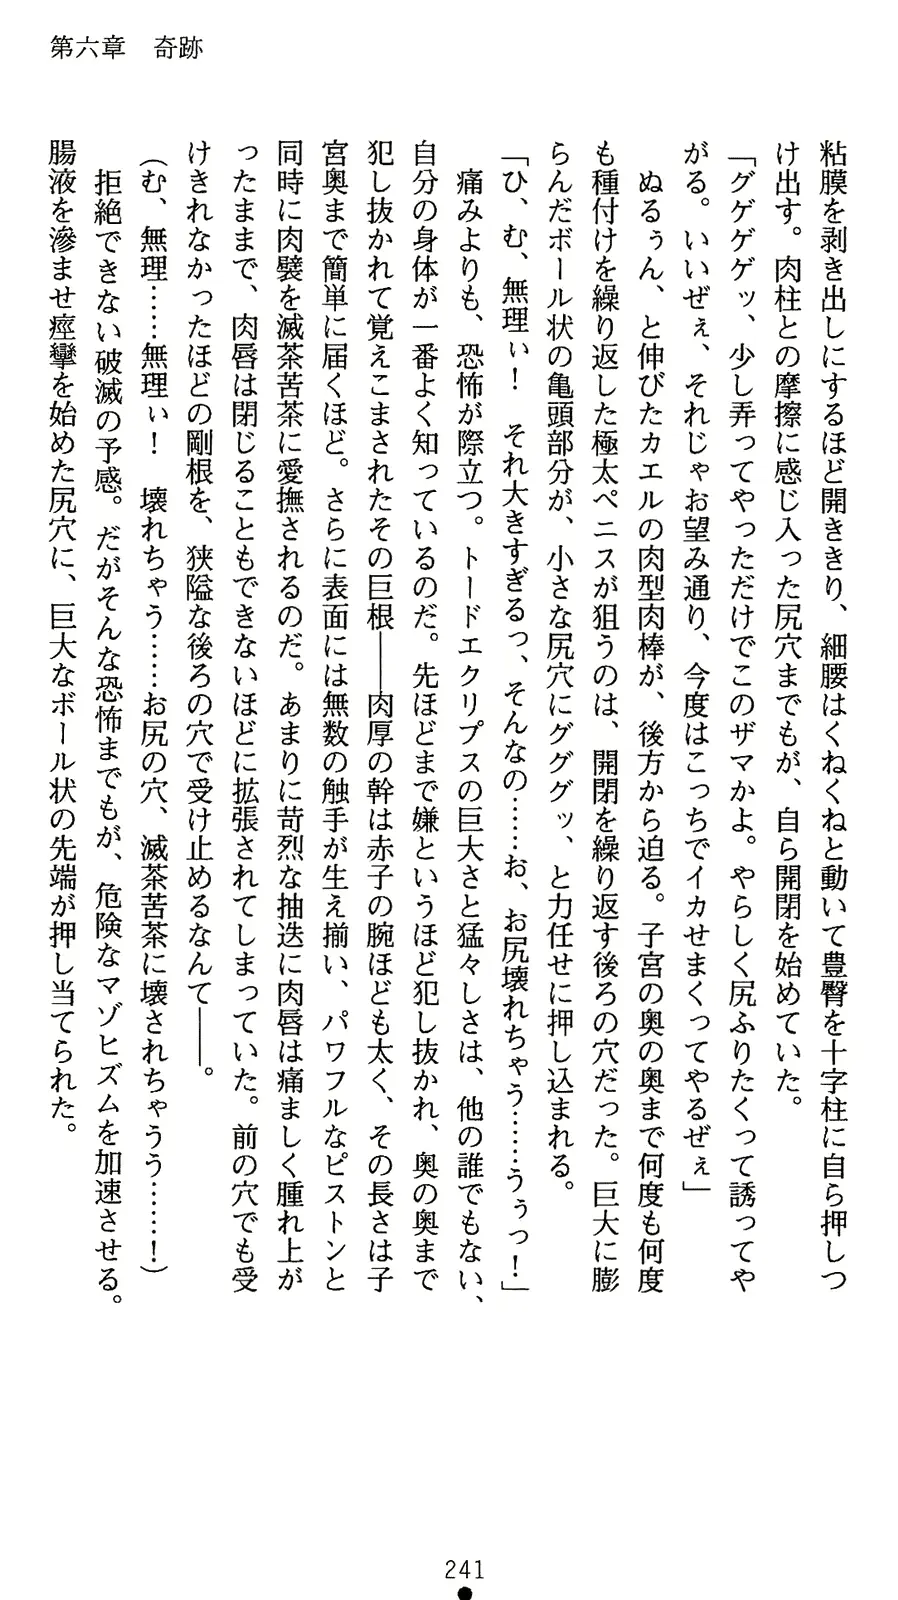 第六章　奇跡
粘膜を剥き出しにするほど開ききり、細腰はくねくねと動いて豊臀を十字柱に自ら押しつ
け出す。肉柱との摩擦に感じ入った尻穴までもが、自ら開閉を始めていた。
「グゲゲゲッ、少し弄ってやっただけでこのザマかよ。やらしく尻ふりたくって誘ってや
がる。いいぜぇ、それじゃお望み通り、今度はこっちでイカせまくってやるぜぇ」
　ぬるぅん、と伸びたカエルの肉型肉棒が、後方から迫る。子宮の奥の奥まで何度も何度
も種付けを繰り返した極太ペニスが狙うのは、開閉を繰り返す後ろの穴だった。巨大に膨
らんだボール状の亀頭部分が、小さな尻穴にグググッ、と力任せに押し込まれる。
「ひ、む、無理ぃ！　それ大きすぎるっ、そんなの……お、お尻壊れちゃう……うぅっ！」
　痛みよりも、恐怖が際立つ。トードエクリプスの巨大さと猛々しさは、他の誰でもない、
自分の身体が一番よく知っているのだ。先ほどまで嫌というほど犯し抜かれ、奥の奥まで
犯し抜かれて覚えこまされたその巨根――肉厚の幹は赤子の腕ほども太く、その長さは子
宮奥まで簡単に届くほど。さらに表面には無数の触手が生え揃い、パワフルなピストンと
同時に肉襞を滅茶苦茶に愛撫されるのだ。あまりに苛烈な抽迭に肉唇は痛ましく腫れ上が
ったままで、肉唇は閉じることもできないほどに拡張されてしまっていた。前の穴でも受
けきれなかったほどの剛根を、狭隘な後ろの穴で受け止めるなんて――。
（む、無理……無理ぃ！　壊れちゃう……お尻の穴、滅茶苦茶に壊されちゃうう……！）
　拒絶できない破滅の予感。だがそんな恐怖までもが、危険なマゾヒズムを加速させる。
腸液を滲ませ痙攣を始めた尻穴に、巨大なボール状の先端が押し当てられた。
241